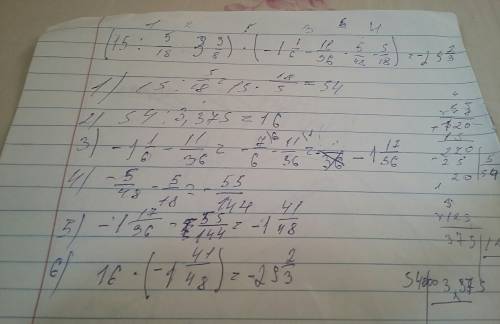 1 2 5 3 6 4
(15 : 5/18 : 3 3/8) · (-1 1/6 - 11/36 · 5/48 - 5/18) = -29 2/3
1) 15 : 5/18 = 15 · 18/5 = 54
2) 54 : 3,375 = 16
3) -1 1/6 - 11/36 = -7/6 - 11/36 = -1 17/36
4) -5/48 - 5/18 = -55/144
5) -1 17/36 - 55/144 = -1 41/48
6) 16 · (-1 41/48) = -29 2/3
375
54000 3,375